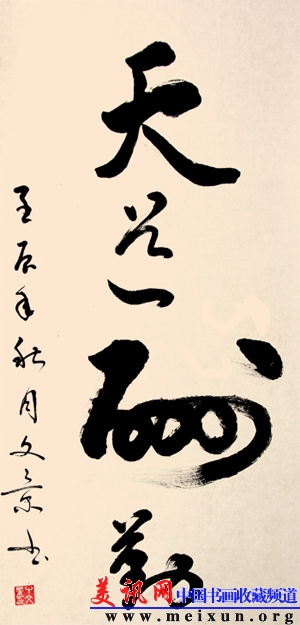 天道酬勤
壬辰年秋月文景书
美讯网 中国书画收藏频道
www.meixun.org